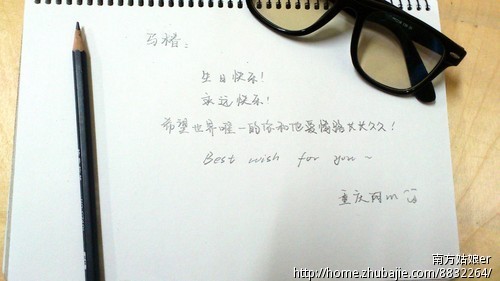 生日快乐！
永远快乐！
希望世界唯一的你和他爱情能天长久久！
Best wish for you ~
重庆
南方姑娘er
http://home.zhubajie.com/8832264/